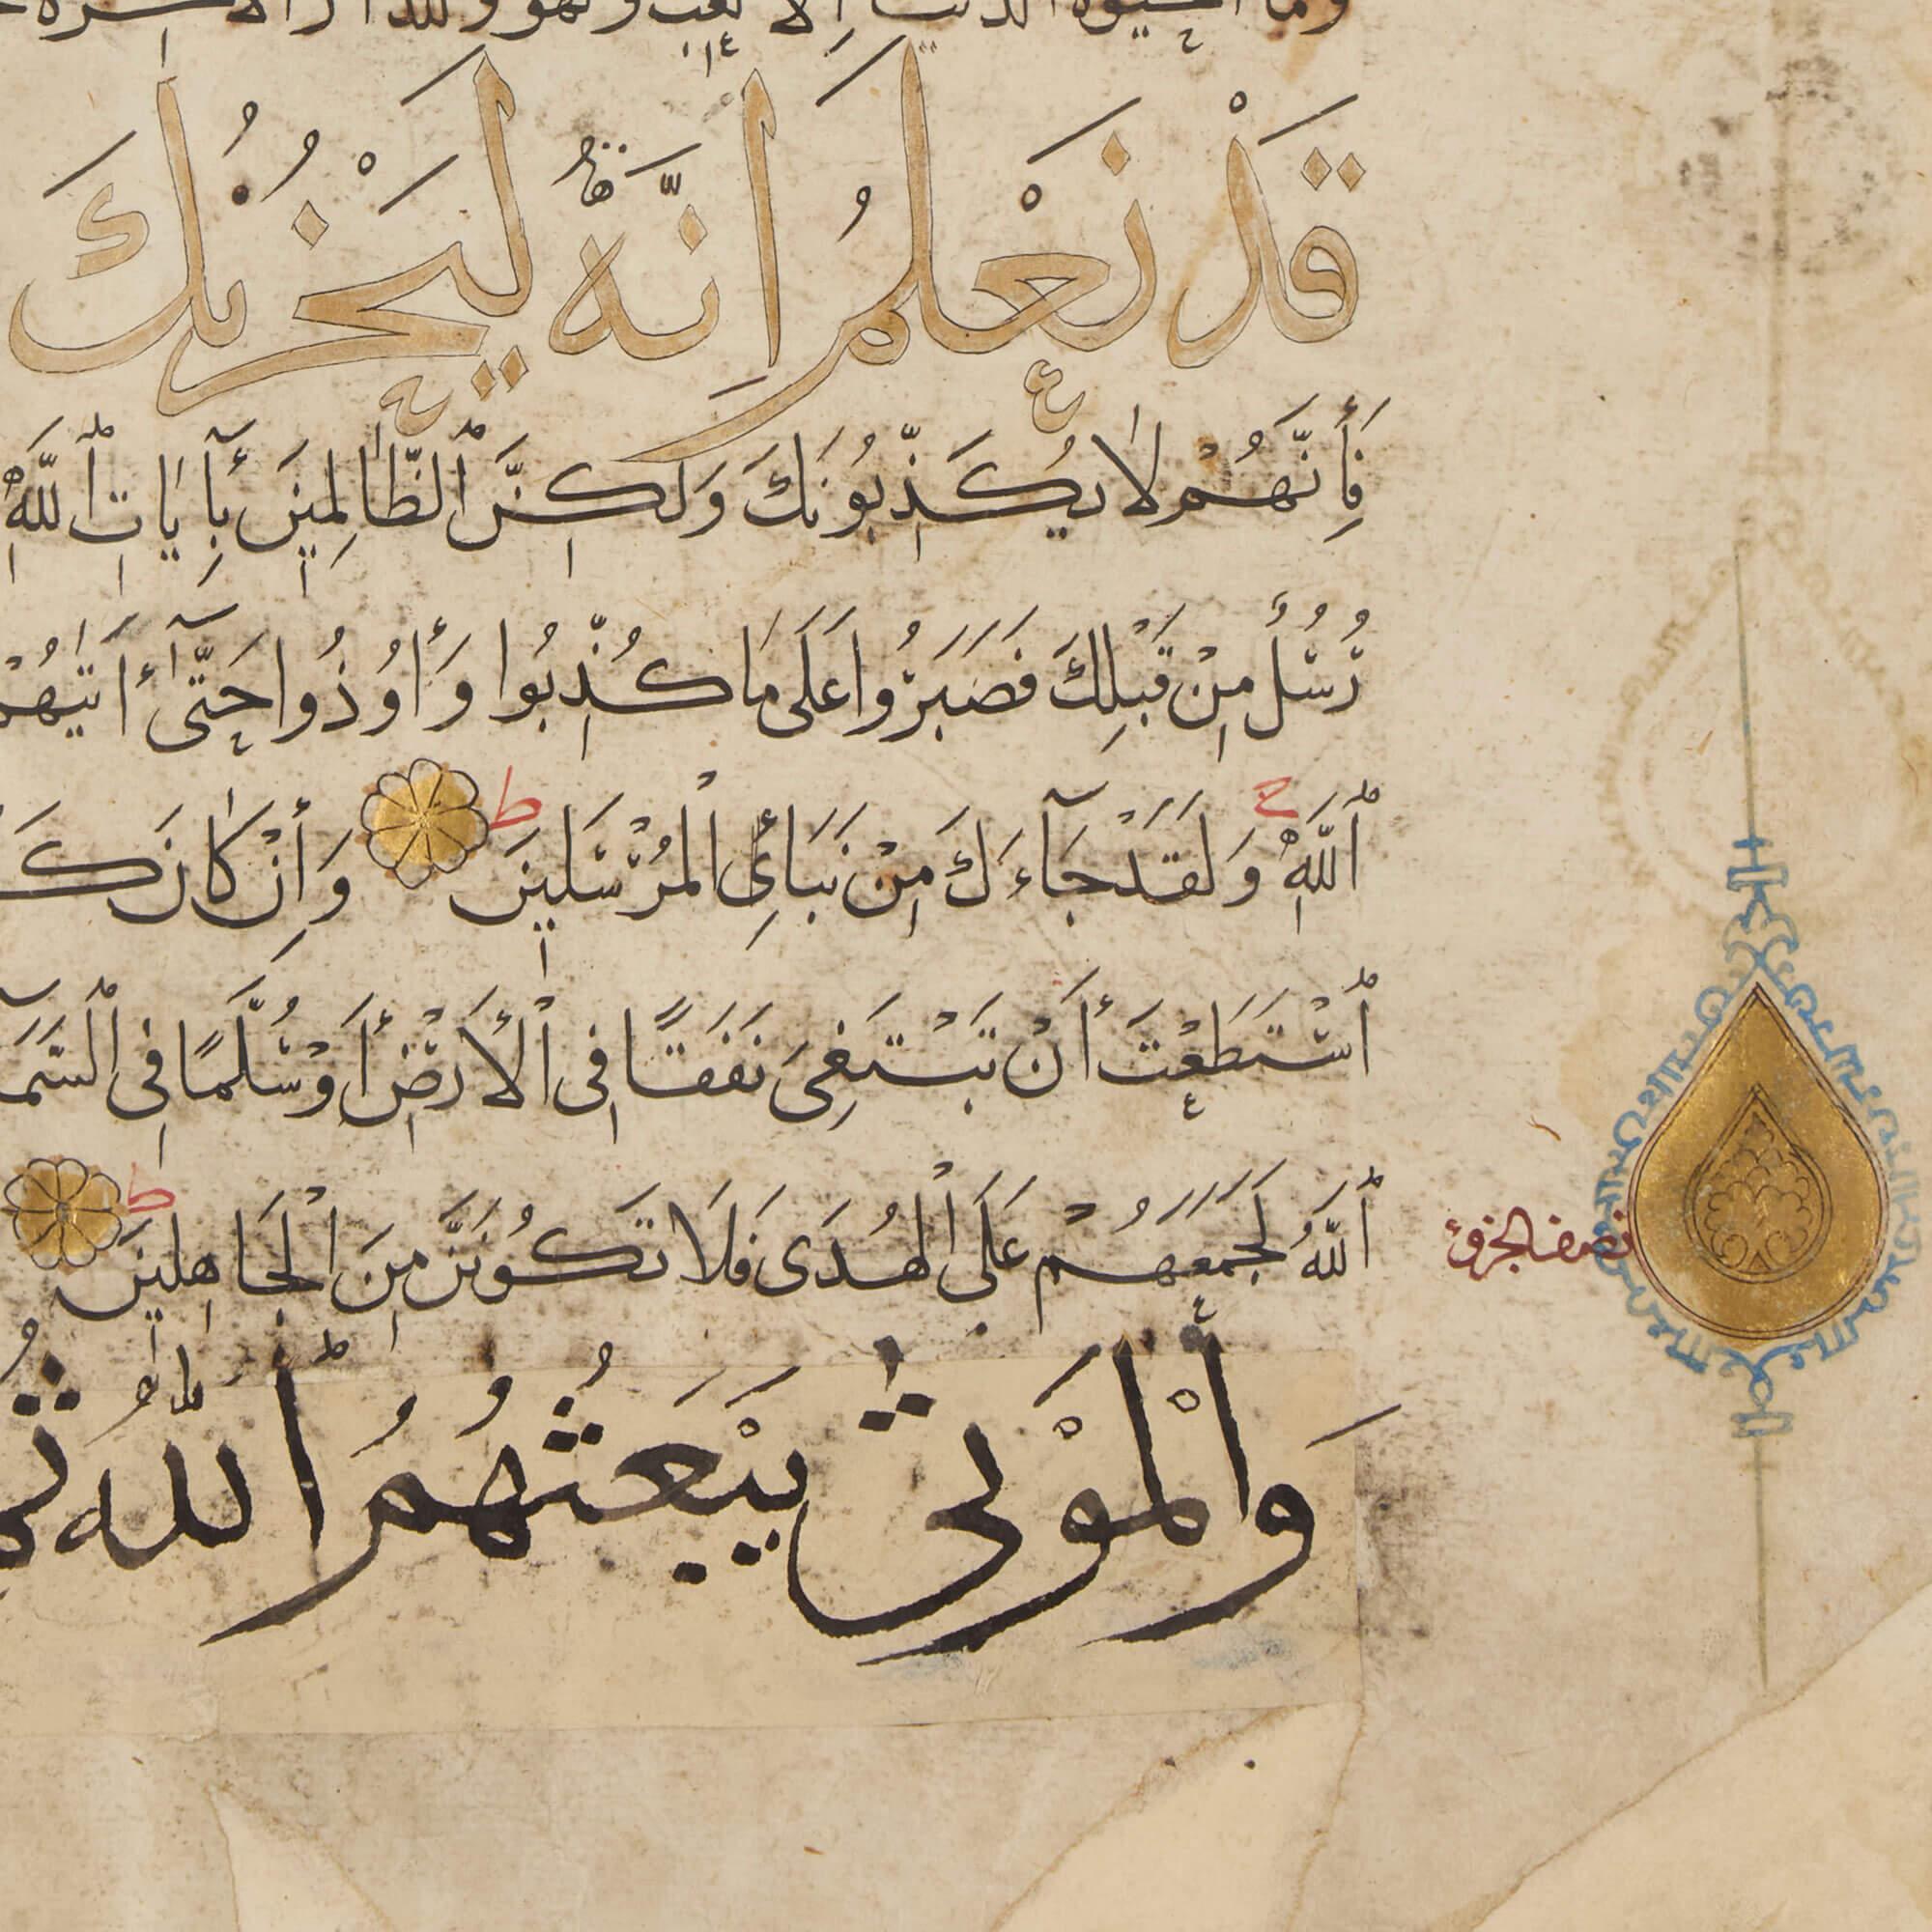 وما الحيوة الدنيا إلا لعب ولهو وللدار الآخرة
قَدْ نَعْلَمُ اِنَّهُ لَيَحْزُنُكَ
فَأِنَّهُمْ لَا يُكَذِّبُونَكَ وَلَكِنَّ ٱلظَّالِمِينَ بِآيَاتِ ٱللَّهِ
رُسُلٌ مِنْ قَبْلِكَ فَصَبَرُوا عَلَى مَا كُذِّبُوا وَأُوذُوا حَتَّىٰٓ أَتَيهُمْ
ٱللَّهِ ج وَلَقَدْ جَآءَكَ مِنْ نَبَأِى الْمُرْسَلِينَ ط وَأِنْ كَانَ كَ
ٱسْتَطَعْتَ أَنْ تَبْتَغِىَ نَفَقًا فِى ٱلْأَرْضِ أَوْ سُلَّمًا فِى ٱلسَّمَ
ٱللَّهُ لَجَمَعَهُمْ عَلَى الْهُدَى فَلَا تَكُونَنَّ مِنَ الْجَاهِلِينَ ط
نصف الجزؤ
وَالْمَوْتَىٰ يَبْعَثُهُمُ ٱللَّهُ ثُمَّ